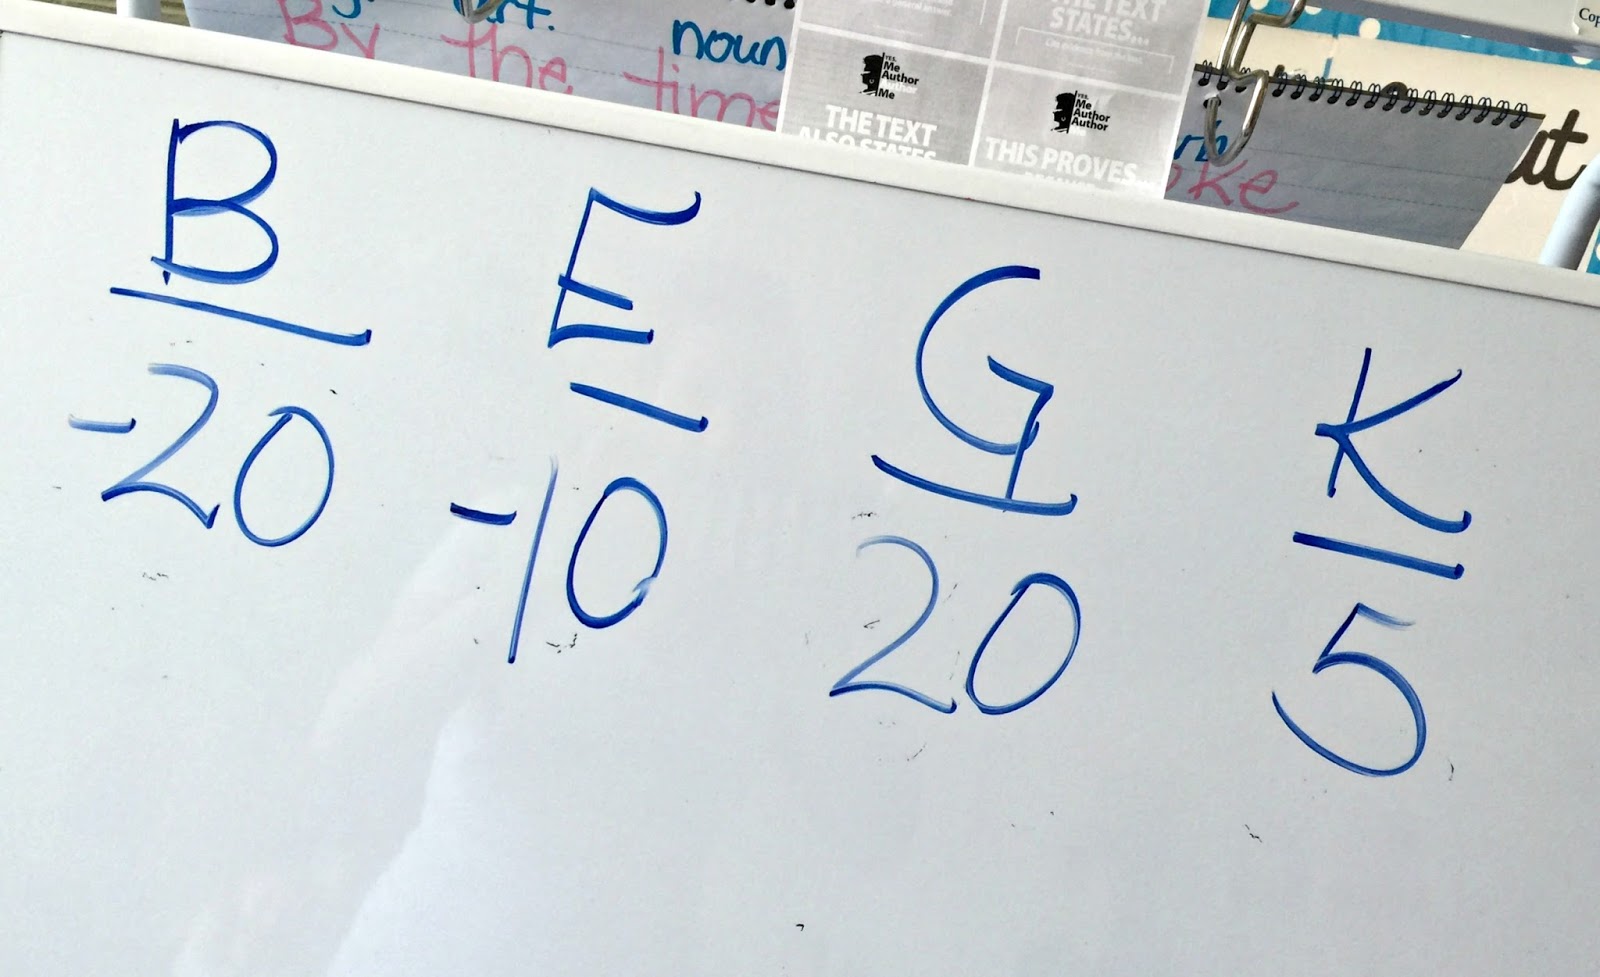 noun
By the time
THE TEXT
STATES...
YES.
Me
Author
Me
THE TEXT
ALSO STATES
YES.
Me
Author
Author
THIS PROVES...
B E G K
-20 -10 20 5